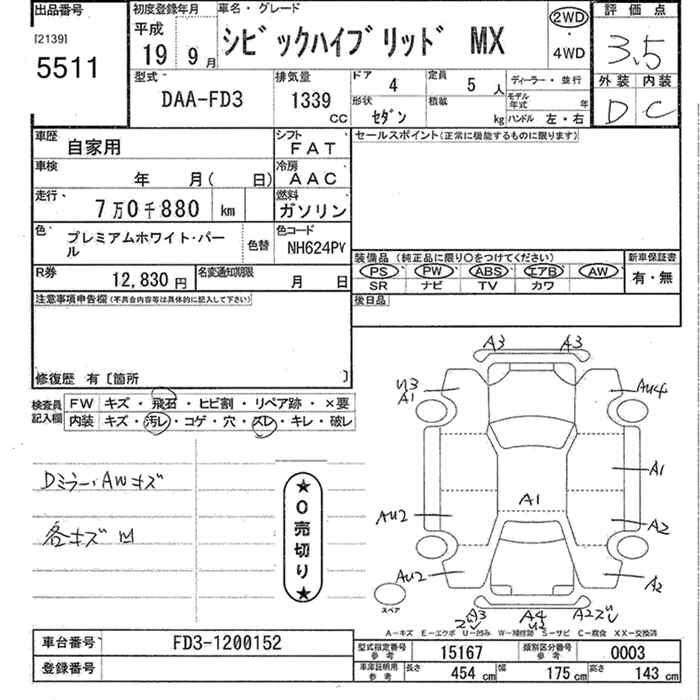 出品番号
[2139]
5511
初度登録年月
平成
19 9月
車名・グレード
シビックハイブリッド MX
2WD
・
4WD
評価点
3.5
外装 内装
D C
型式
DAA-FD3
排気量
1339
CC
ドア 4
定員 5 人
形状 セダン
積載 kg
ディーラー・並行
モデル年式 年
ハンドル 左・右
車歴 自家用
シフト FAT
車検 年 月( 日)
冷房 AAC
走行 7万0千880 km
燃料 ガソリン
色 プレミアムホワイト・パール
色替
色コード NH624PV
R券 12,830円
名変通知期限 月 日
セールスポイント(正常に機能するものに限ります)
装備品(純正品に限り○をつけてください)
PS PW ABS エアB AW
SR ナビ TV カワ
新車保証書
有・無
後日品
注意事項申告欄(不具合内容等は具体的に記入して下さい)
修復歴 有〔箇所 〕
検査員記入欄
FW キズ・飛石・ヒビ割・リペア跡・×要
内装 キズ・汚レ・コゲ・穴・スレ・キレ・破レ
Dミラー・AWキズ
各キズ凹
★0売切り★
A3 A3
U3
A1
AU4
A1
A1
AU2
A2
AU2
A2
スペア
A3
A4
U2
A2ズレ
A-キズ E-エクボ U-凹み W-補修跡 S-サビ C-腐食 XX-交換済
車台番号 FD3-1200152
登録番号
型式指定番号 参考 15167
類別区分番号 参考 0003
車庫証明用 参考 長さ 454 cm 幅 175 cm 高さ 143 cm